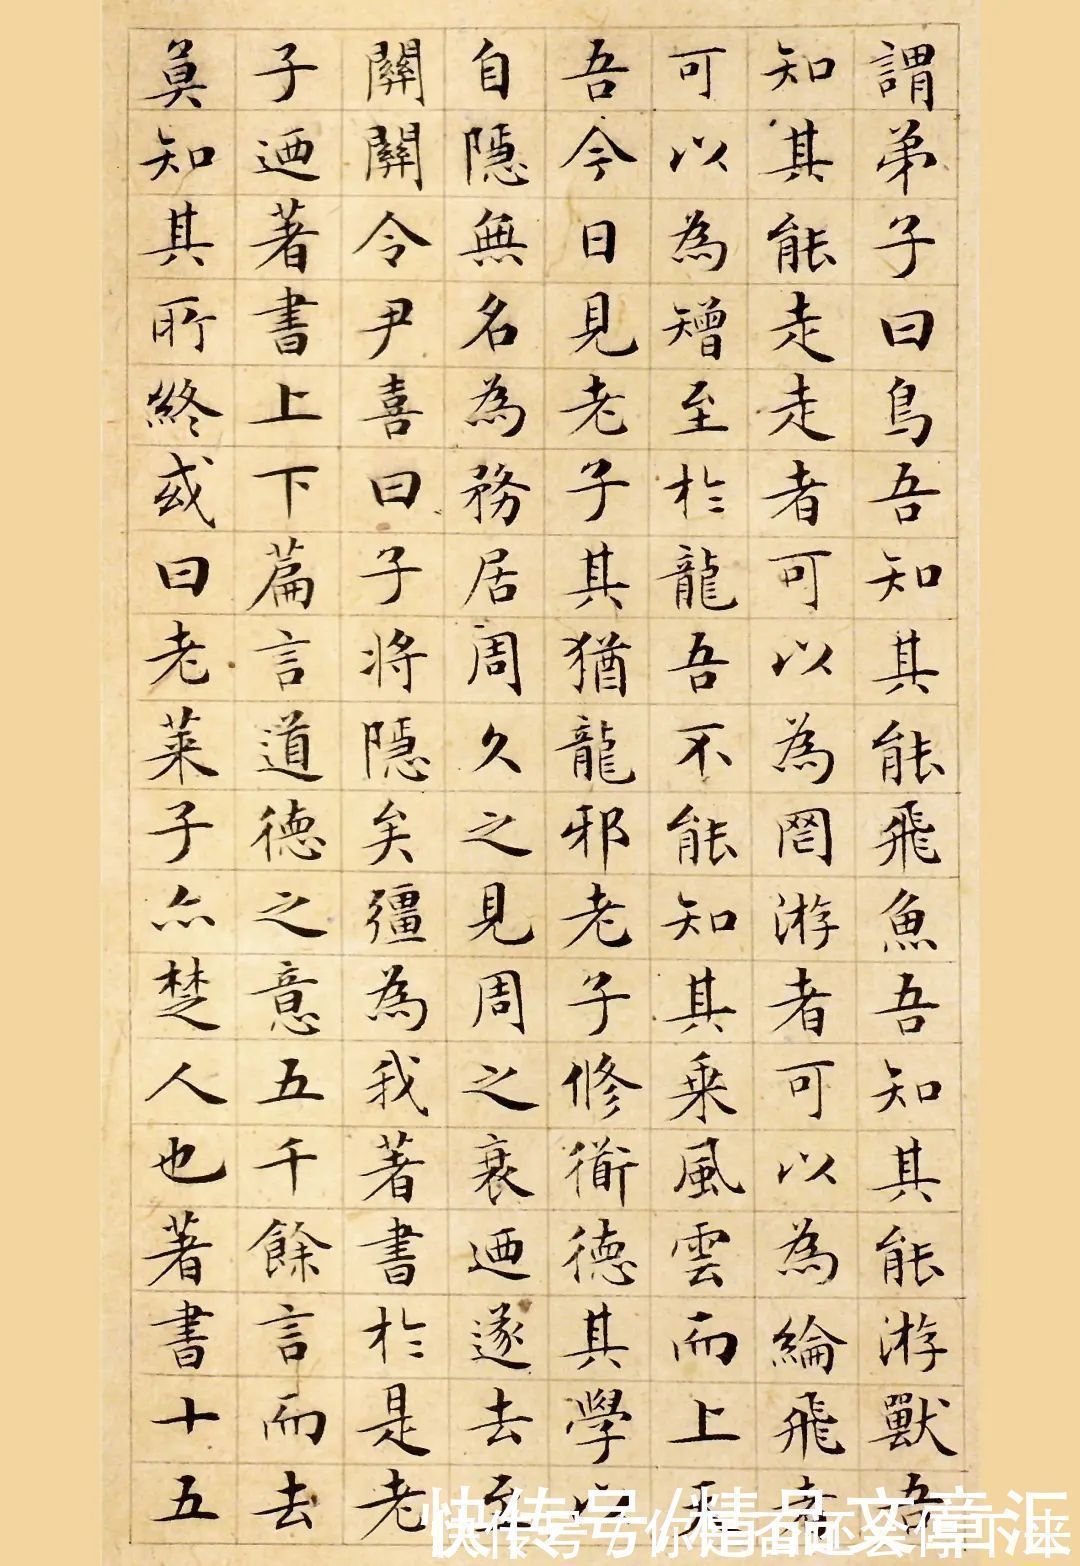 謂弟子曰鳥吾知其能飛魚吾知其能游獸吾
知其能走走者可以為罔游者可以為綸飛者
可以為矰至於龍吾不能知其乗風雲而上
吾今日見老子其猶龍邪老子修衜德其學以
自隱無名為務居周久之見周之衰迺遂去至
關關令尹喜曰子將隱矣彊為我著書於是老
子迺著書上下篇言道德之意五千餘言而去
莫知其所終或曰老萊子亦楚人也著書十五
快传号/精品文章汇